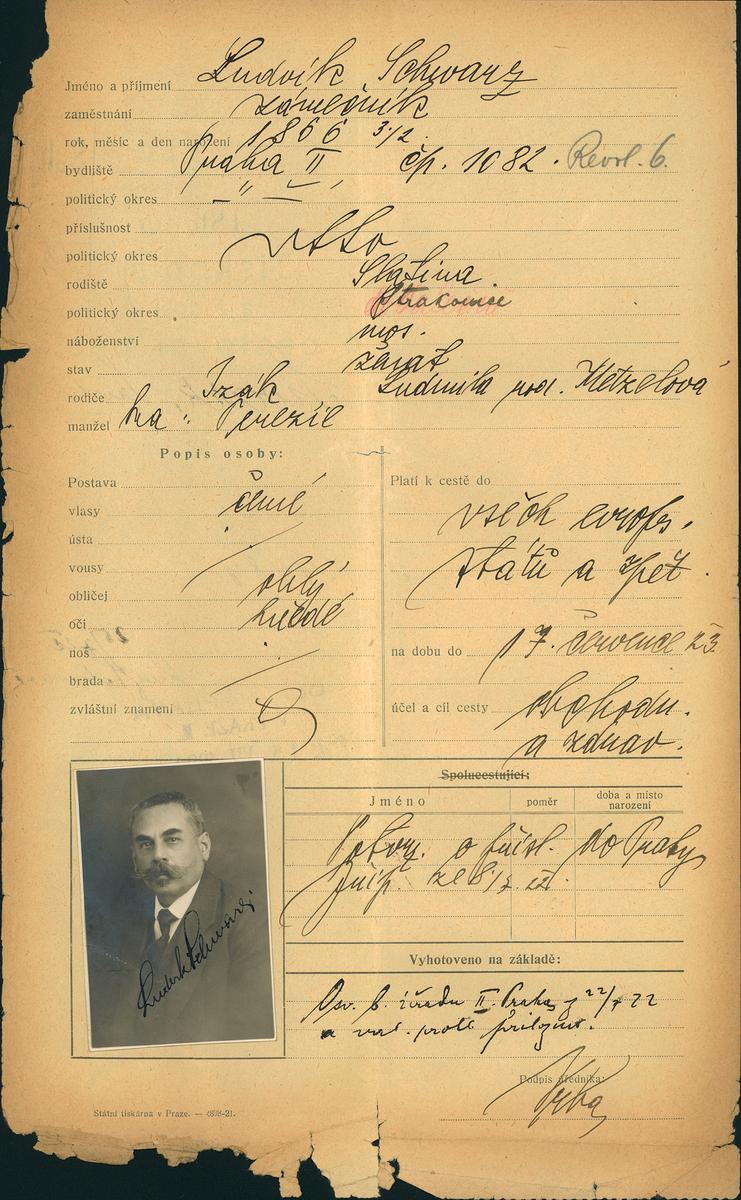 Jméno a příjmení Ludvík Schwarz
zaměstnání zámečník
rok, měsíc a den narození 1866 3/2
bydliště Praha II čp. 1082. Revol. 6.
politický okres
příslušnost
politický okres
rodiště Slatina
politický okres Strakonice
náboženství mos.
stav ženat
rodiče Izák Ludmila roz. Hetzelová
manžel ka: Terezie
Popis osoby:
Postava
vlasy černé
ústa
vousy
obličej oblý
oči hnědé
nos
brada
zvláštní znamení
Platí k cestě do
všech evrops.
států a zpět.
na dobu do 17. července 23.
účel a cíl cesty obchodu.
a zdrav.
Spolucestující:
Jméno
poměr
doba a místo
narození
Potvrz. o přísl. do Prahy
Vyhotoveno na základě:
Osv. b. úřadu II. Praha z 22/7 22
Podpis úředníka:
Ludvík Schwarz
Státní tiskárna v Praze. —